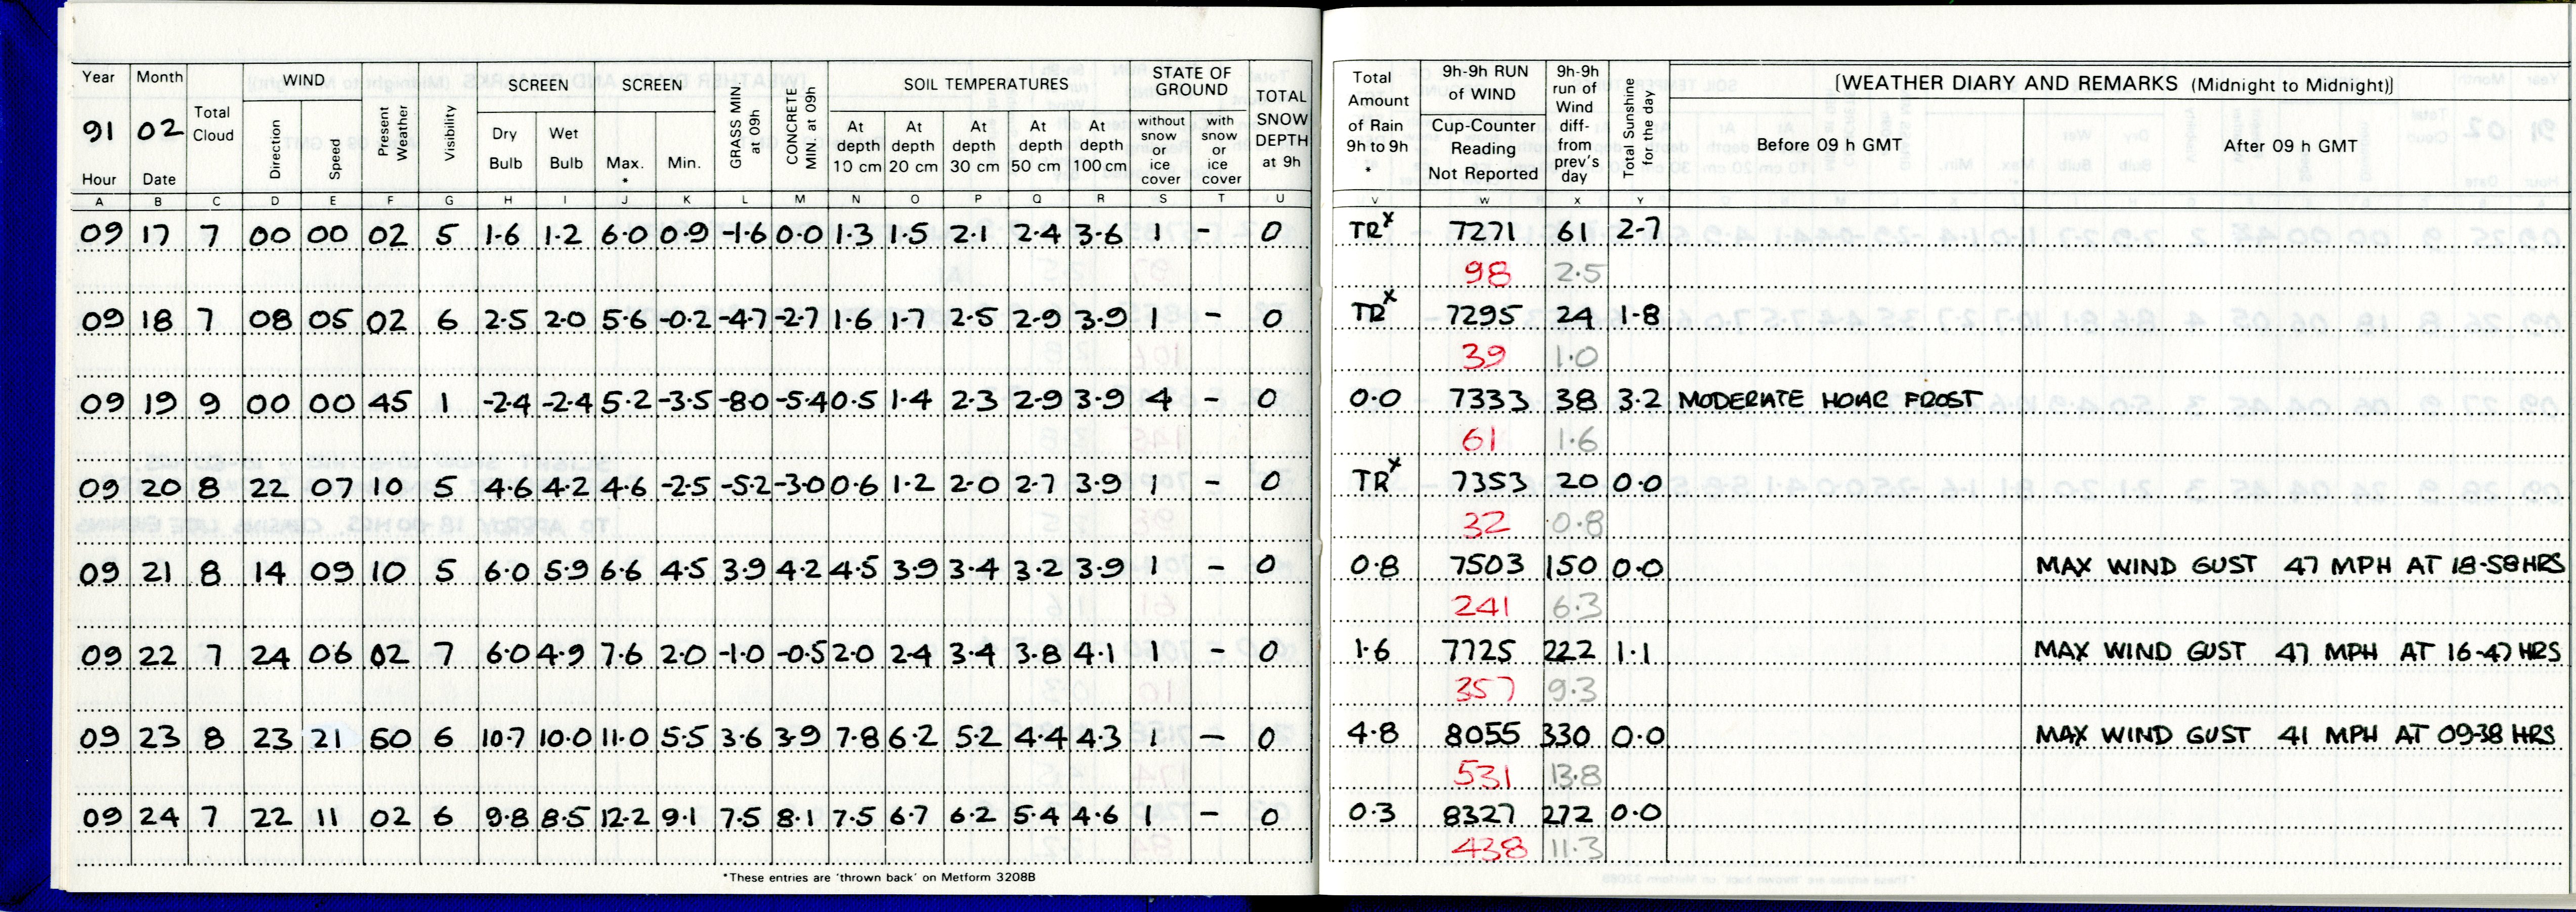 Year Month Total Cloud WIND Present Weather Visibility SCREEN SCREEN GRASS MIN. at 09h CONCRETE MIN. at 09h SOIL TEMPERATURES STATE OF GROUND TOTAL SNOW DEPTH at 9h Total Amount of Rain 9h to 9h * 9h-9h RUN of WIND 9h-9h run of Wind diff- from prev's day Total Sunshine for the day [WEATHER DIARY AND REMARKS (Midnight to Midnight)]
91 02 Direction Speed Dry Bulb Wet Bulb Max. * Min. At depth 10 cm At depth 20 cm At depth 30 cm At depth 50 cm At depth 100 cm without snow or ice cover with snow or ice cover Cup-Counter Reading Not Reported Before 09 h GMT After 09 h GMT
Hour Date
A B C D E F G H I J K L M N O P Q R S T U V W X Y
09 17 7 00 00 02 5 1·6 1·2 6·0 0·9 -1·6 0·0 1·3 1·5 2·1 2·4 3·6 1 - 0 TRx 7271 61 2·7
98 2·5
09 18 7 08 05 02 6 2·5 2·0 5·6 -0·2 -4·7 -2·7 1·6 1·7 2·5 2·9 3·9 1 - 0 TRx 7295 24 1·8
39 1·0
09 19 9 00 00 45 1 -2·4 -2·4 5·2 -3·5 -8·0 -5·4 0·5 1·4 2·3 2·9 3·9 4 - 0 0·0 7333 38 3·2 MODERATE HOAR FROST
61 1·6
09 20 8 22 07 10 5 4·6 4·2 4·6 -2·5 -5·2 -3·0 0·6 1·2 2·0 2·7 3·9 1 - 0 TRx 7353 20 0·0
32 0·8
09 21 8 14 09 10 5 6·0 5·9 6·6 4·5 3·9 4·2 4·5 3·9 3·4 3·2 3·9 1 - 0 0·8 7503 150 0·0 MAX WIND GUST 47 MPH AT 18-58 HRS
241 6·3
09 22 7 24 06 02 7 6·0 4·9 7·6 2·0 -1·0 -0·5 2·0 2·4 3·4 3·8 4·1 1 - 0 1·6 7725 222 1·1 MAX WIND GUST 47 MPH AT 16-47 HRS
357 9·3
09 23 8 23 21 60 6 10·7 10·0 11·0 5·5 3·6 3·9 7·8 6·2 5·2 4·4 4·3 1 - 0 4·8 8055 330 0·0 MAX WIND GUST 41 MPH AT 09-38 HRS
531 13·8
09 24 7 22 11 02 6 9·8 8·5 12·2 9·1 7·5 8·1 7·5 6·7 6·2 5·4 4·6 1 - 0 0·3 8327 272 0·0
438 11·3
*These entries are 'thrown back' on Metform 3208B